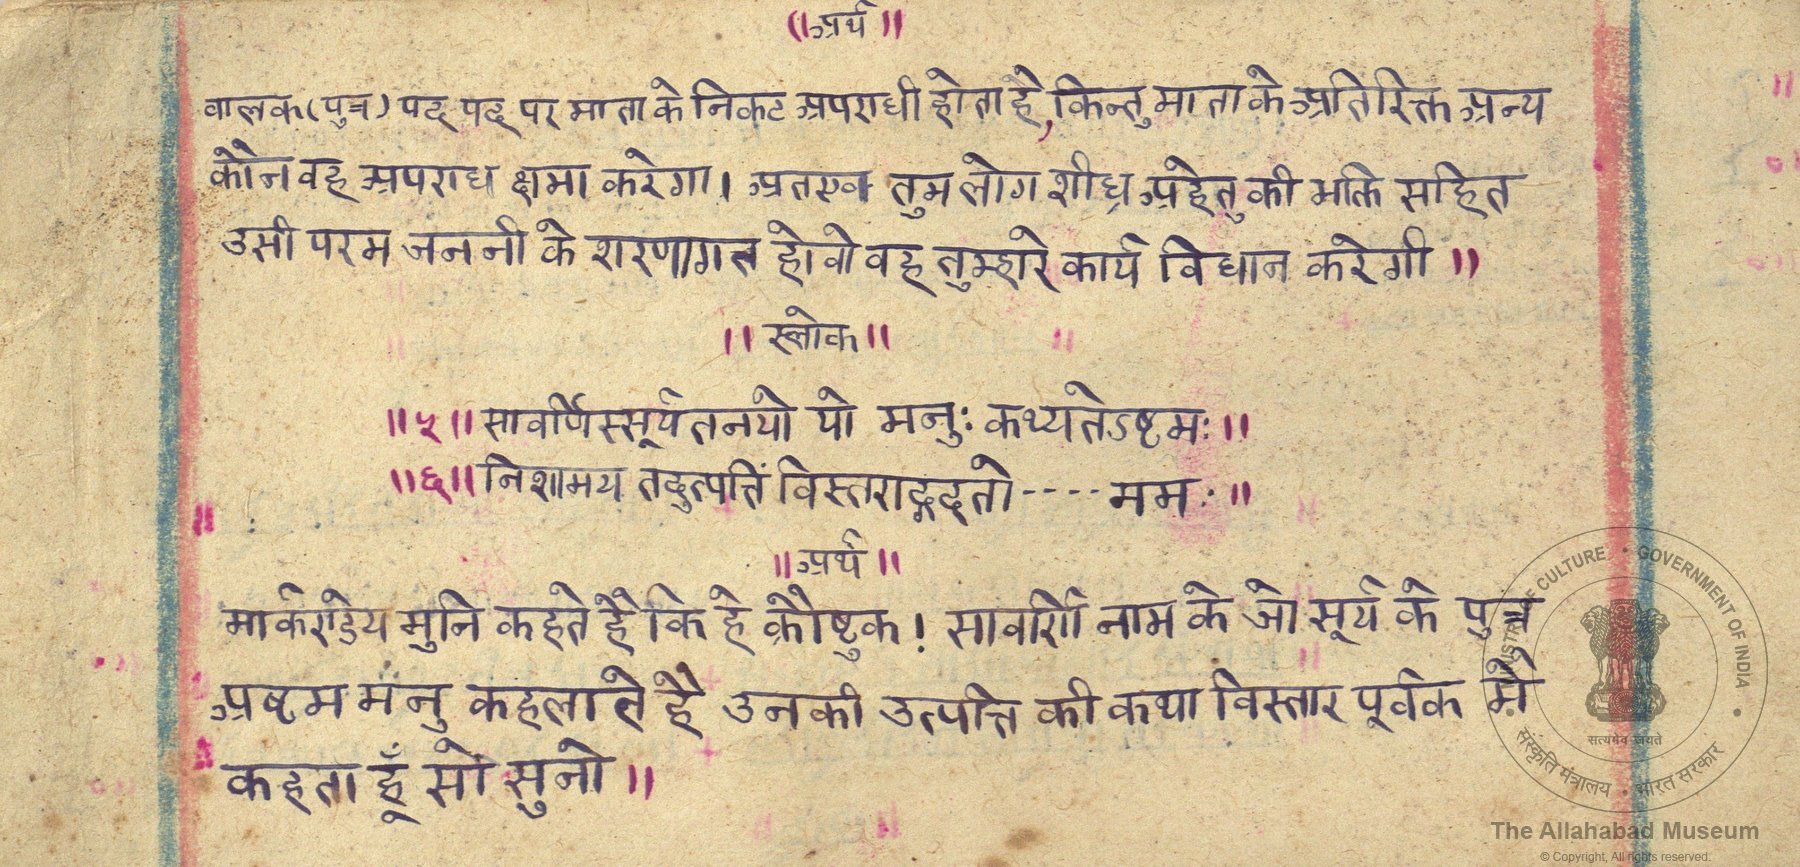 ॥ अर्थ ॥
वालक (पुत्र) पद पद पर माता के निकट अपराधी होता है, किन्तु माता के अतिरिक्त अन्य
कौन वह अपराध क्षमा करेगा। अतएव तुम लोग शीघ्र अहेतु की भक्ति सहित
उसी परम जननी के शरणागत होवो वह तुम्हारे कार्य विधान करेगी ॥
॥ स्लोक ॥
॥५॥ सावर्णिस्सूर्यतनयो यो मनुः कथ्यतेऽष्टमः ॥
॥६॥ निशामय तदुत्पत्तिं विस्तराद्गदतो ---- मम. ॥
॥ अर्थ ॥
मार्कराडेय मुनि कहते है कि हे क्रौष्टुक! सावर्णि नाम के जो सूर्य के पुत्र
अष्टम मनु कहलाते है उनकी उत्पत्ति की कथा विस्तार पूर्वक मै
कहता हूँ सो सुनो ॥
MINISTRY OF CULTURE • GOVERNMENT OF INDIA •
सत्यमेव जयते
संस्कृति मंत्रालय • भारत सरकार
The Allahabad Museum
© Copyright, All rights reserved.